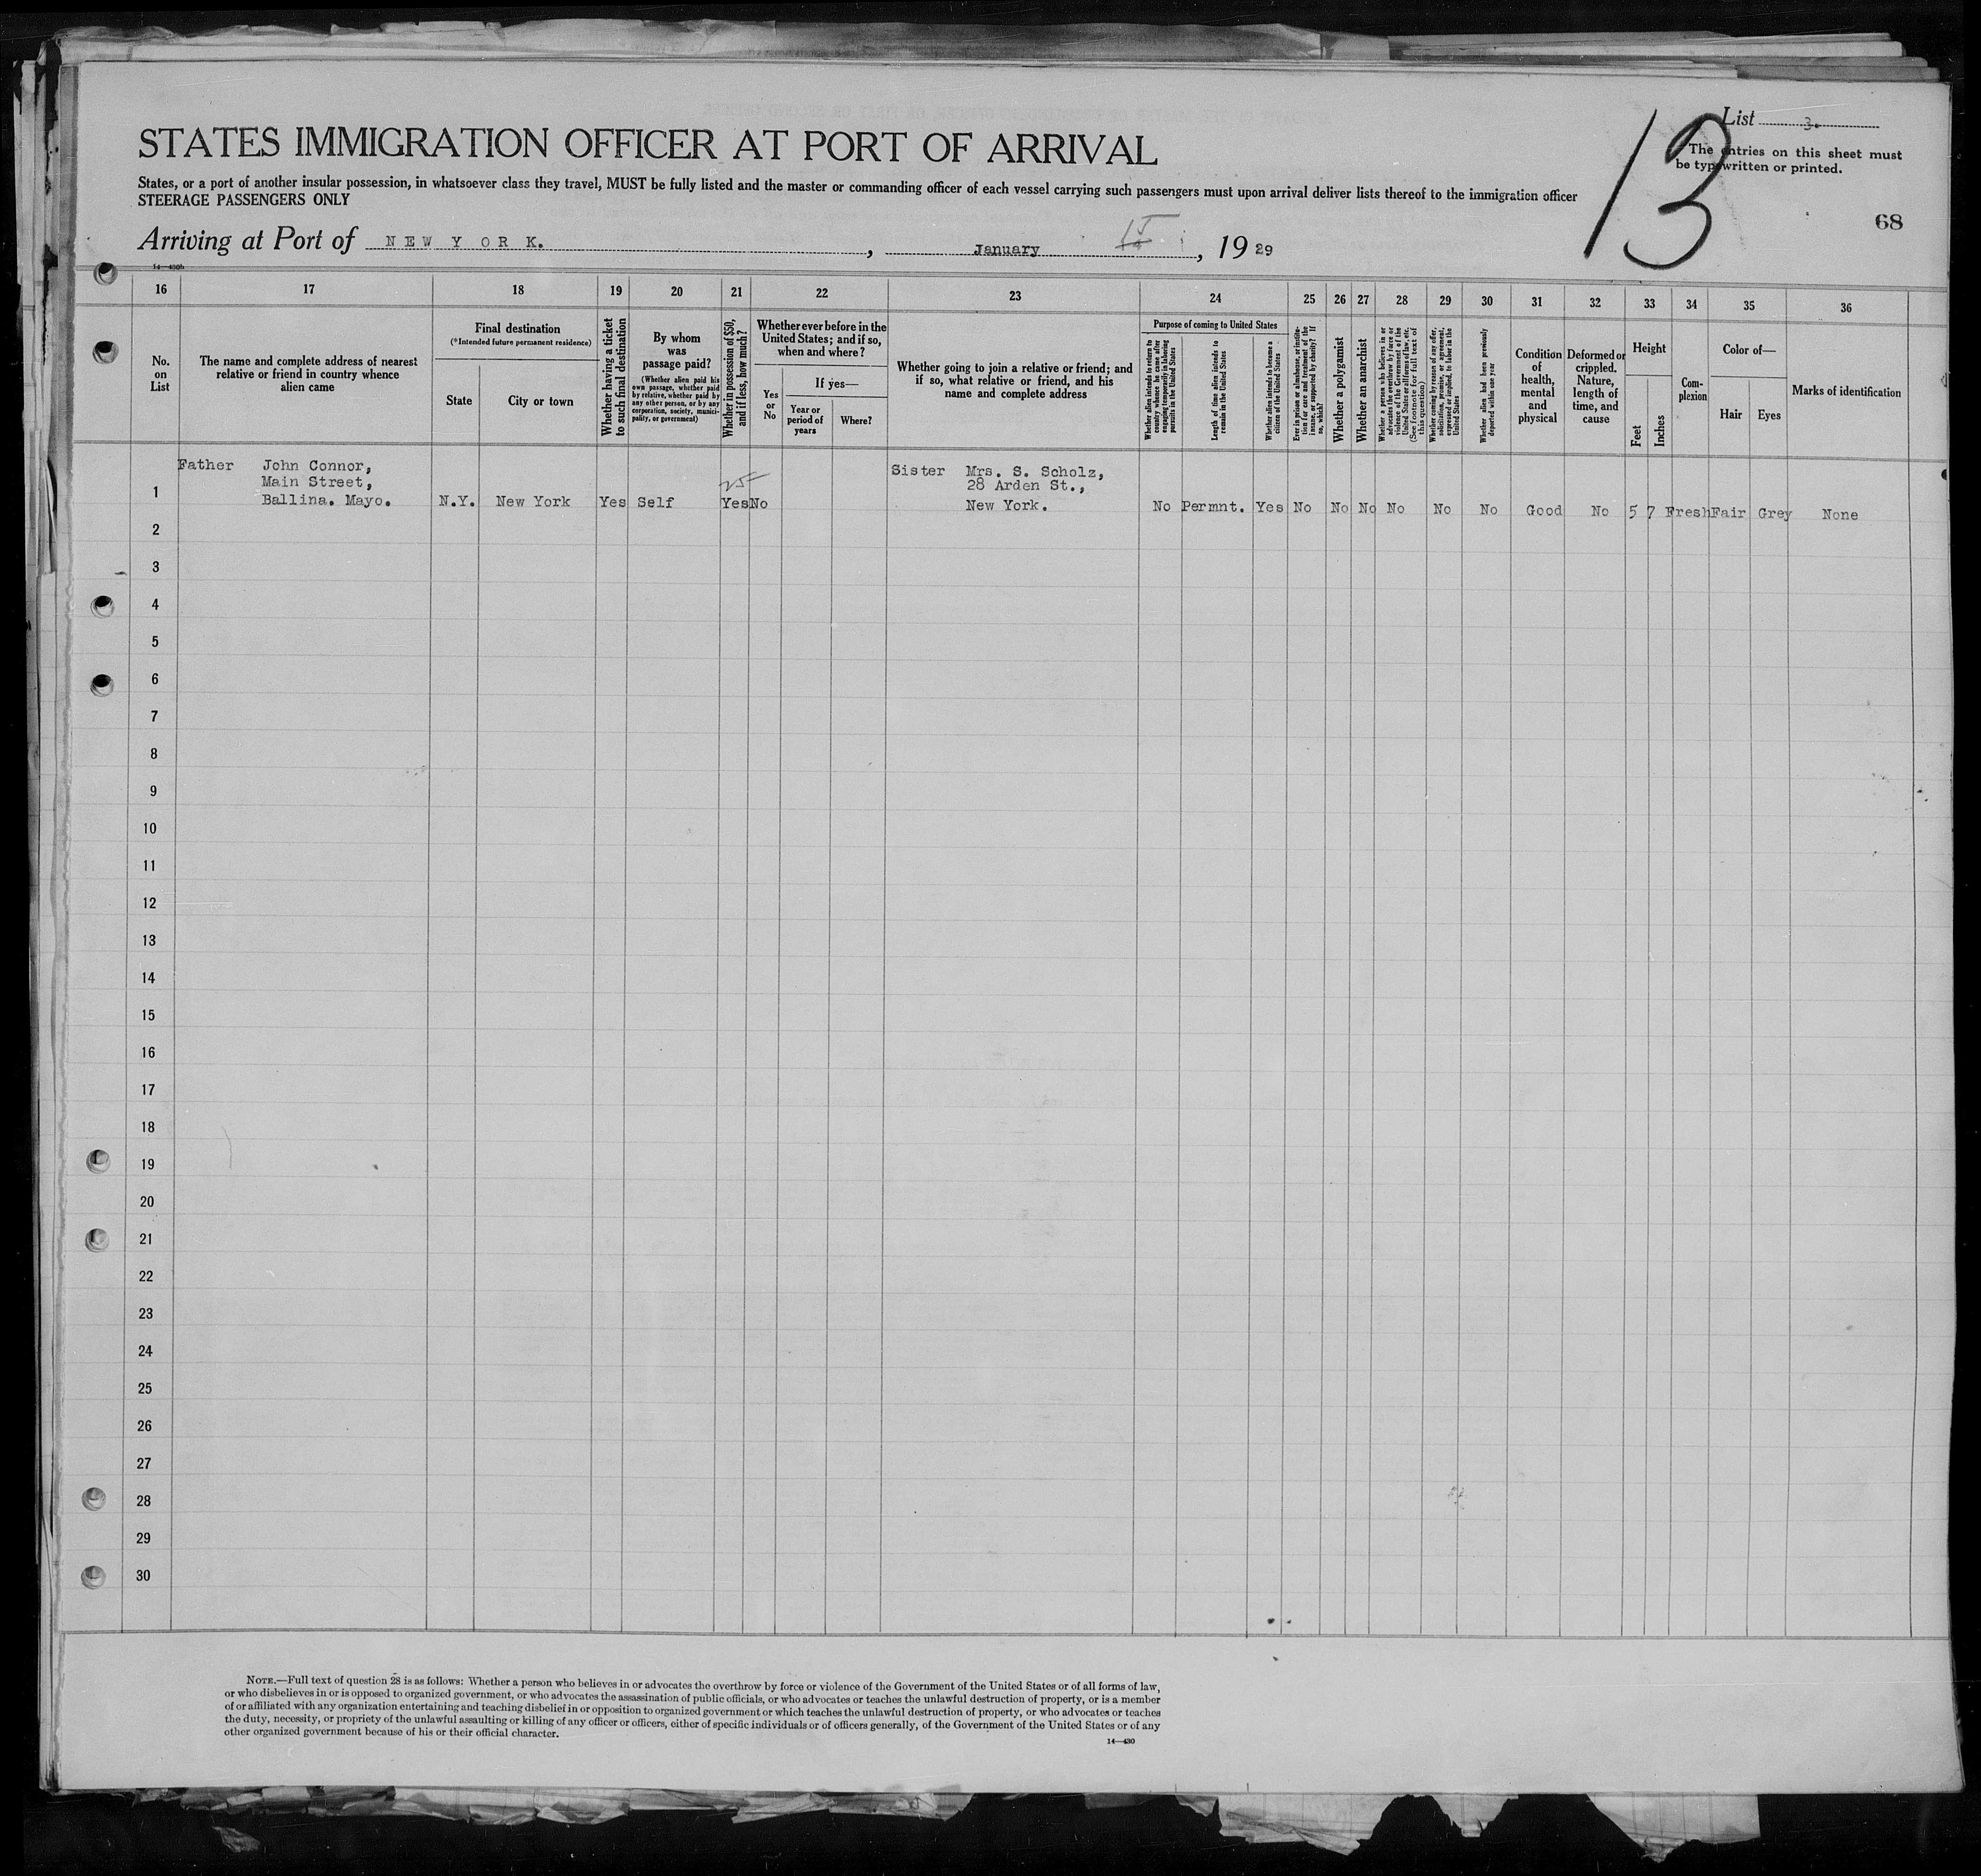 List 3.
13
The entries on this sheet must
be typewritten or printed.
68
STATES IMMIGRATION OFFICER AT PORT OF ARRIVAL
States, or a port of another insular possession, in whatsoever class they travel, MUST be fully listed and the master or commanding officer of each vessel carrying such passengers must upon arrival deliver lists thereof to the immigration officer
STEERAGE PASSENGERS ONLY
Arriving at Port of NEW YORK. , January 15 , 1929
14—430b
16 17 18 19 20 21 22 23 24 25 26 27 28 29 30 31 32 33 34 35 36
No.
on
List
The name and complete address of nearest
relative or friend in country whence
alien came
Final destination
(*Intended future permanent residence)
State
City or town
Whether having a ticket
to such final destination
By whom
was
passage paid?
(Whether alien paid his
own passage, whether paid
by relative, whether paid by
any other person, or by any
corporation, society, munici-
pality, or government)
Whether in possession of $50,
and if less, how much?
Whether ever before in the
United States; and if so,
when and where?
Yes
or
No
If yes—
Year or
period of
years
Where?
Whether going to join a relative or friend; and
if so, what relative or friend, and his
name and complete address
Purpose of coming to United States
Whether alien intends to return to
country whence he came after
engaging temporarily in laboring
pursuits in the United States
Length of time alien intends to
remain in the United States
Whether alien intends to become a
citizen of the United States
Ever in prison or almshouse, or institu-
tion for care and treatment of the
insane, or supported by charity? If
so, which?
Whether a polygamist
Whether an anarchist
Whether a person who believes in or
advocates the overthrow by force or
violence of the Government of the
United States or all forms of law, etc.
(See footnote for full text of
this question)
Whether coming by reason of any offer,
solicitation, promise, or agreement,
expressed or implied, to labor in the
United States
Whether alien had been previously
deported within one year
Condition
of
health,
mental
and
physical
Deformed or
crippled.
Nature,
length of
time, and
cause
Height
Feet
Inches
Com-
plexion
Color of—
Hair
Eyes
Marks of identification
Father John Connor,
Main Street,
Ballina. Mayo.
1
N.Y. New York Yes Self
25
Yes No
Sister Mrs. S. Scholz,
28 Arden St.,
New York.
No Permnt. Yes No No No No No No Good No 5 7 Fresh Fair Grey None
2
3
4
5
6
7
8
9
10
11
12
13
14
15
16
17
18
19
20
21
22
23
24
25
26
27
28
29
30
NOTE.—Full text of question 28 is as follows: Whether a person who believes in or advocates the overthrow by force or violence of the Government of the United States or of all forms of law,
or who disbelieves in or is opposed to organized government, or who advocates the assassination of public officials, or who advocates or teaches the unlawful destruction of property, or is a member
of or affiliated with any organization entertaining and teaching disbelief in or opposition to organized government or which teaches the unlawful destruction of property, or who advocates or teaches
the duty, necessity, or propriety of the unlawful assaulting or killing of any officer or officers, either of specific individuals or of officers generally, of the Government of the United States or of any
other organized government because of his or their official character.
14—430